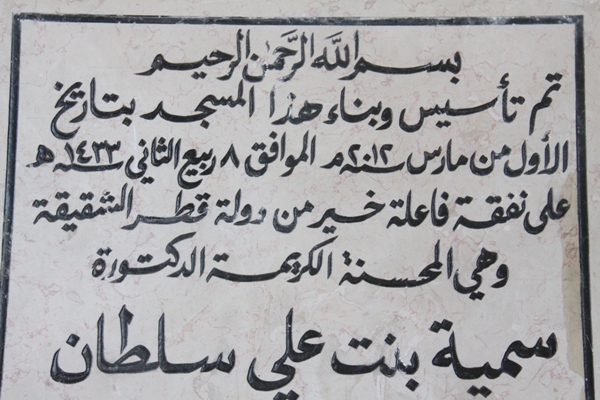 بسم الله الرَّحمن الرحيم
تم تأسيس وبناء هذا المسجد بتاريخ
الأول من مارس سنة ٢٠١٢م الموافق ٨ ربيع الثاني سنة ١٤٣٣هـ
على نفقة فاعلة خير من دولة قطر الشقيقة
وهي المحسنة الكريمة الدكتورة
سمية بنت علي سلطان